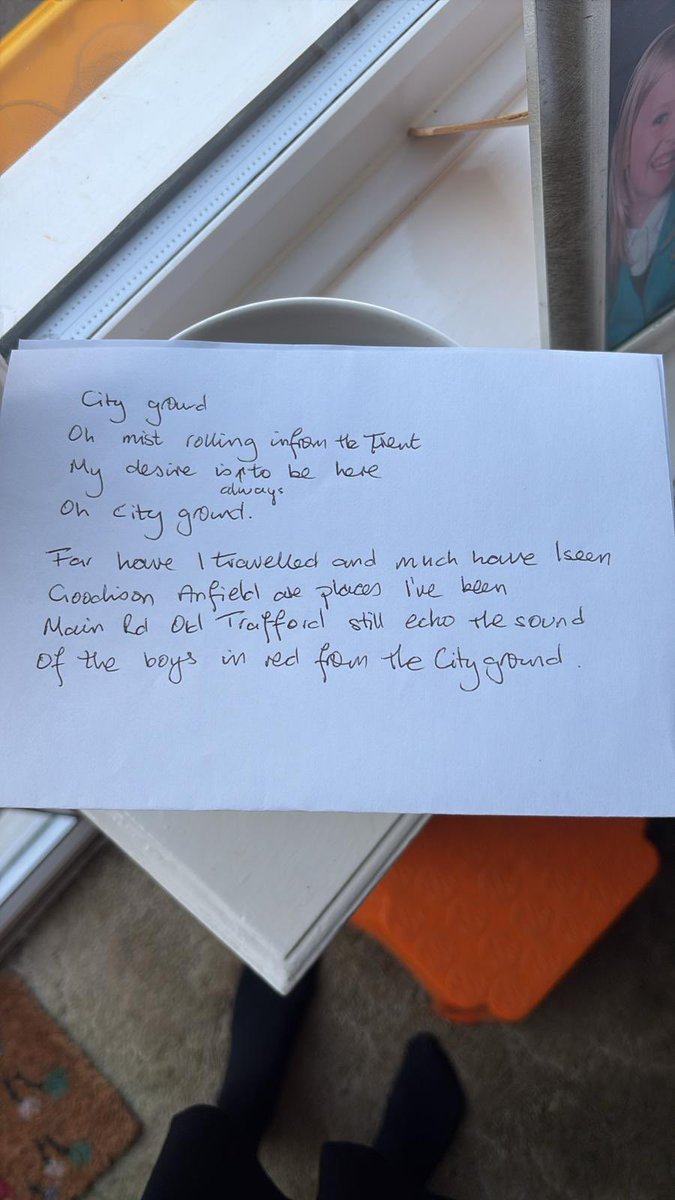 City ground
Oh mist rolling in from the Trent
My desire is always to be here
Oh City ground.
Far have I travelled and much have I seen
Goodison Anfield are places I've been
Main Rd Old Trafford still echo the sound
Of the boys in red from the City ground.